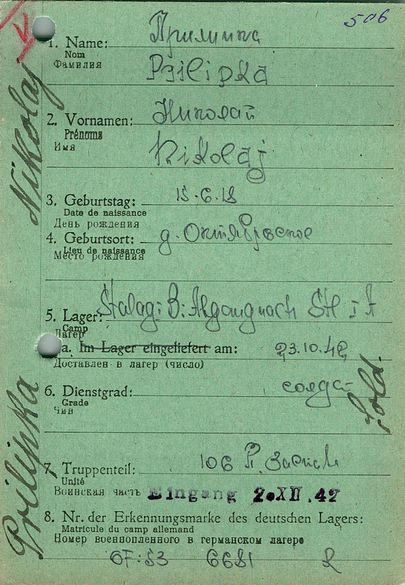 506
1. Name: Прилипка
Nom
Фамилия Prilipka
2. Vornamen: Николай
Prénoms
Имя Nikolaj
3. Geburtstag: 15.6.18
Date de naissance
День рождения
4. Geburtsort: д. Октябрьское
Lieu de naissance
Место рождения
5. Lager: Stalag I B. Abgang nach St I A
Camp
Лагерь
a. Im Lager eingeliefert am: 23.10.42
Доставлен в лагерь (число)
6. Dienstgrad: солдат
Grade
Чин
Sold.
7. Truppenteil: 106
Unité
Воинская часть Eingang 2. XII. 42
8. Nr. der Erkennungsmarke des deutschen Lagers:
Matricule du camp allemand
Номер военнопленного в германском лагере
6681
Prilipka Nikolaj